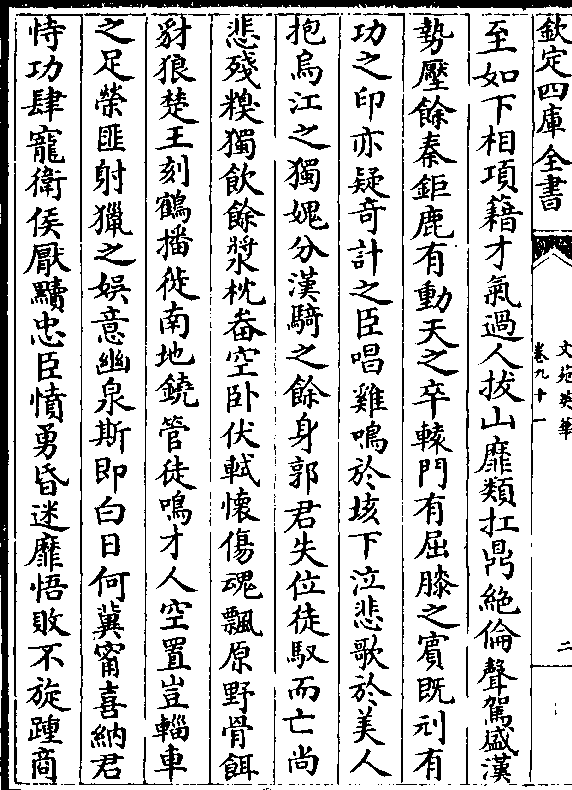 欽定四庫全書
文苑英華
卷九十一
二
至如下相項籍才氣過人拔山靡類扛鼎絶倫聲駕盛漢
勢壓餘秦鉅鹿有動天之卒轅門有屈膝之賔既刓有
功之印亦疑竒計之臣唱雞鳴於垓下泣悲歌於美人
抱烏江之獨媿分漢騎之餘身郭君失位徒馭而亡尚
悲殘糗獨飲餘漿枕畚空卧伏軾懷傷魂飄原野骨餌
豺狼楚王刻鶴播徙南地鐃管徒鳴才人空置豈輜車
之足榮匪射獵之娯意幽泉斯即白日何冀甯喜納君
恃功肆寵衛侯厭黷忠臣憤勇昏迷靡悟敗不旋踵商